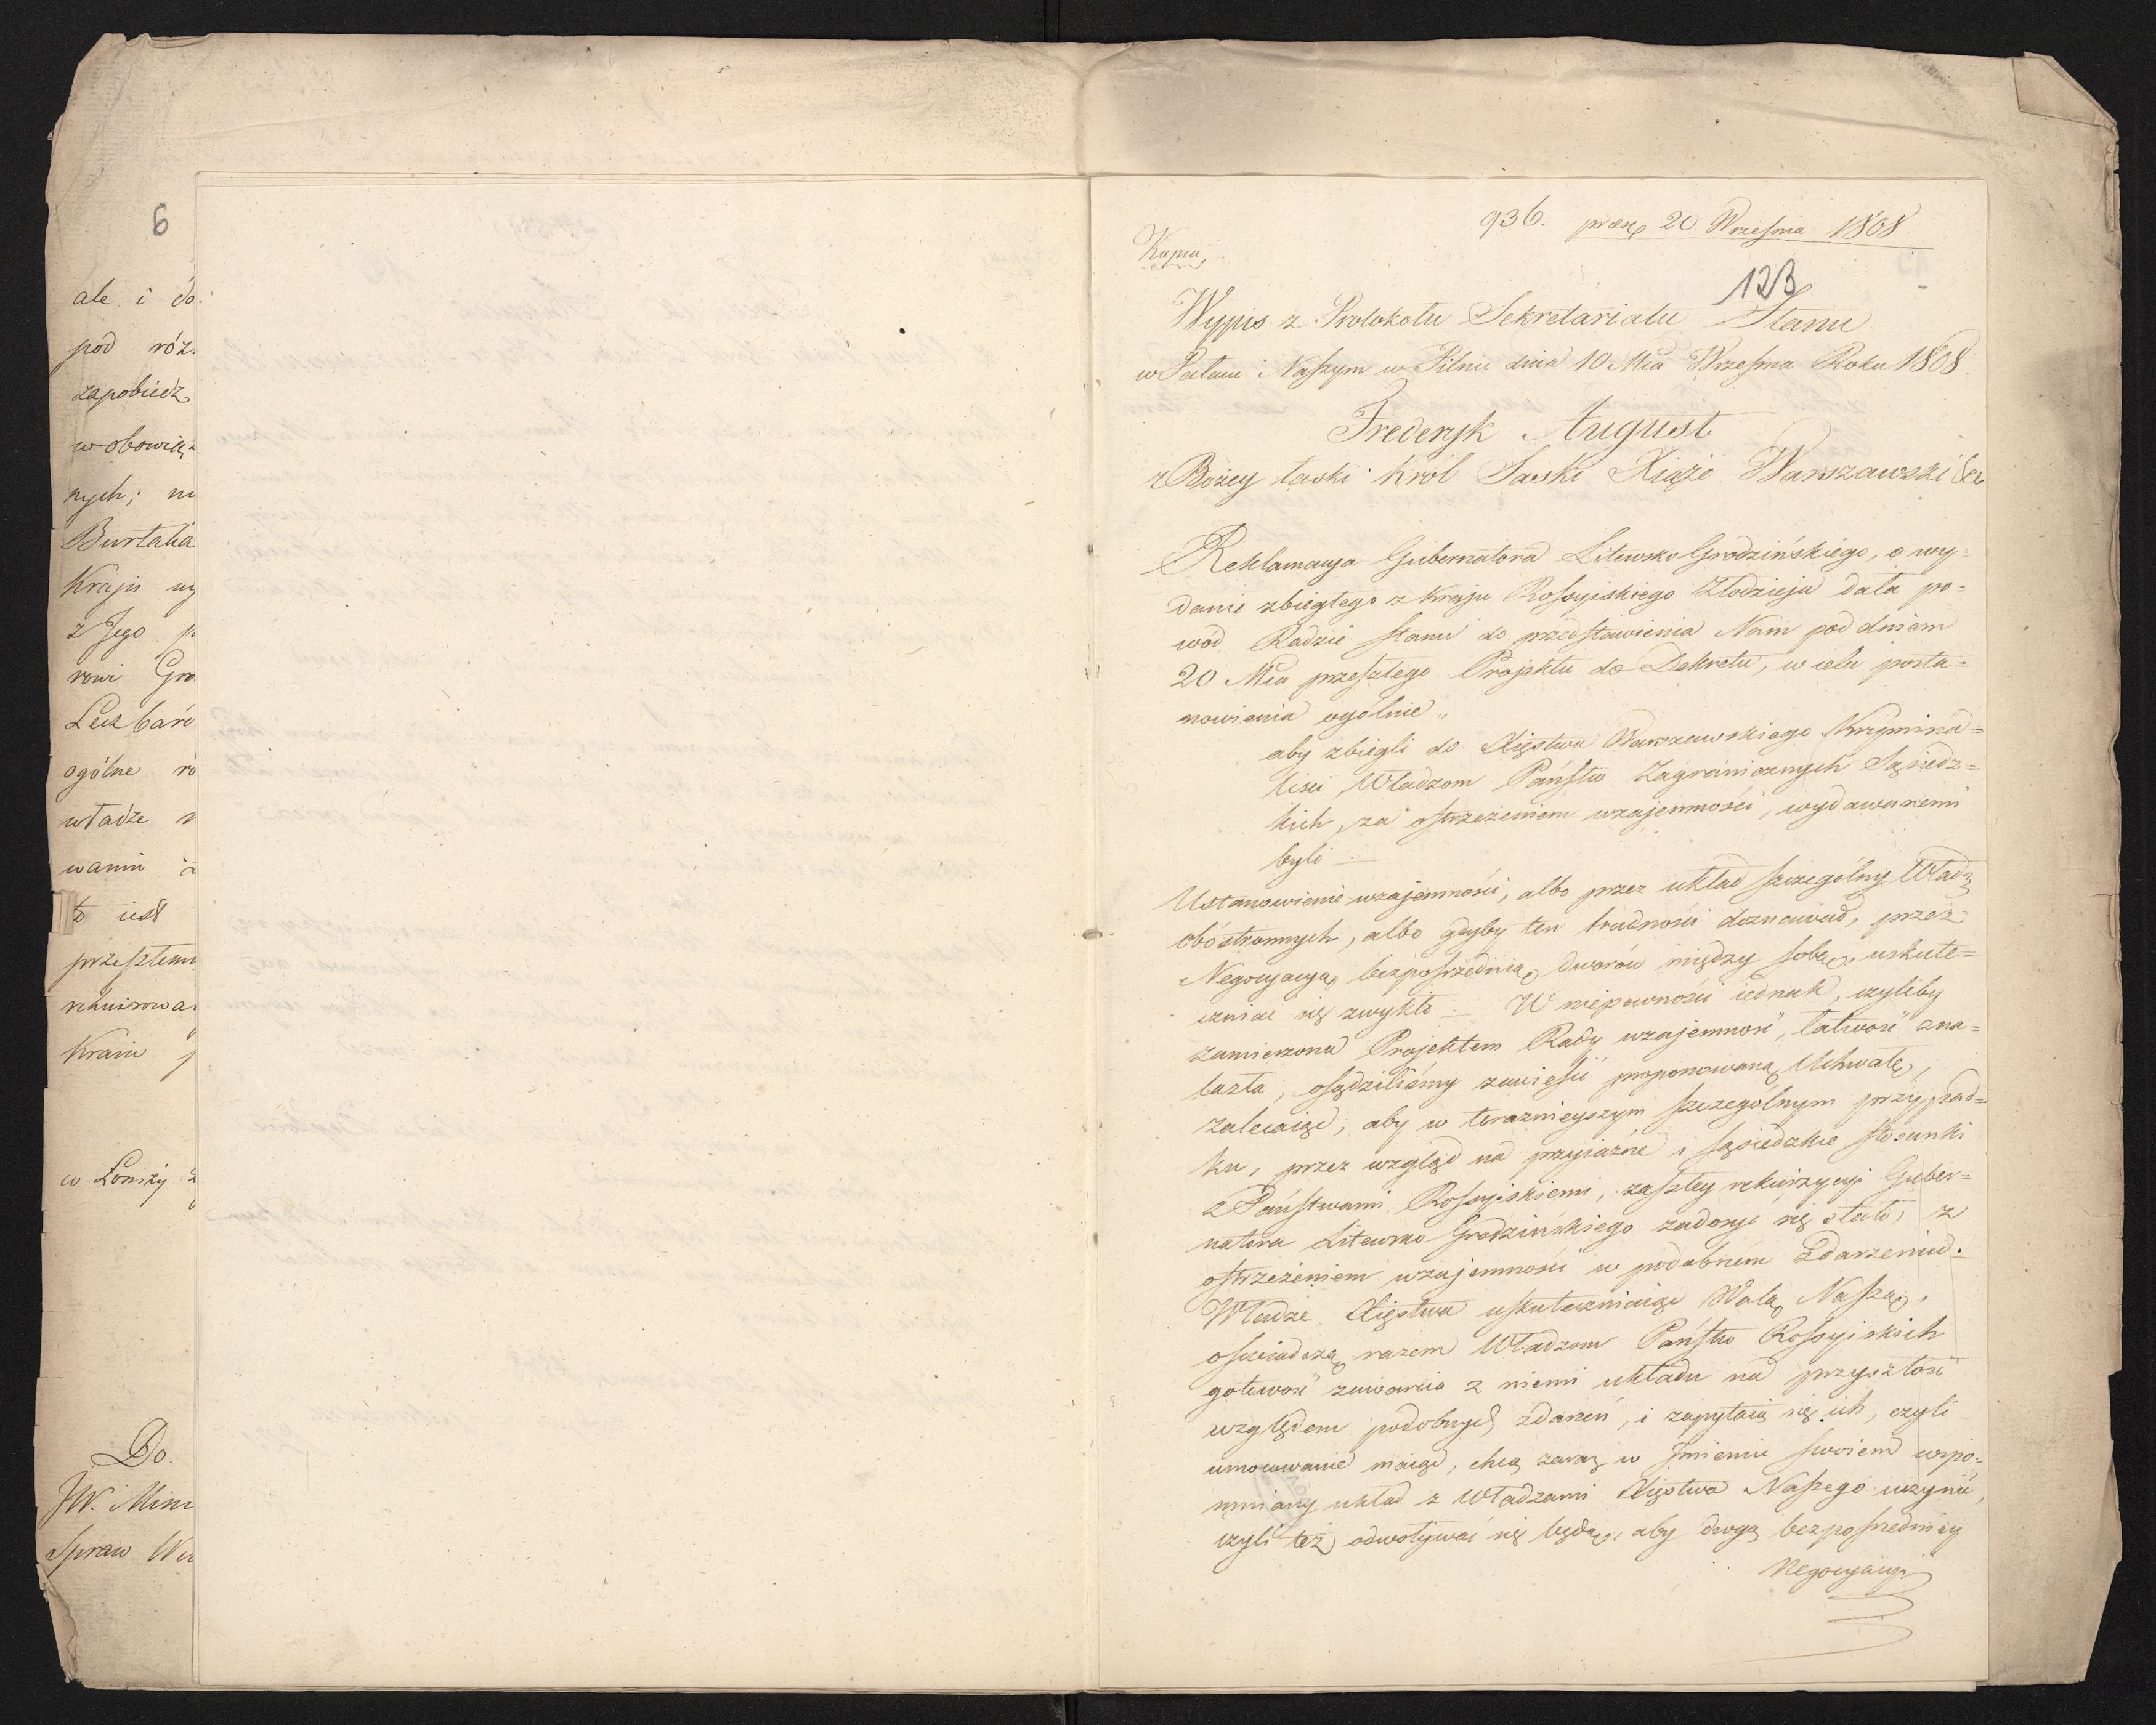 6
ale i do
pod róż
zapobiedz
w obowią
nych; ni
Burtalia
Kraju wy
z Jego p
rowi Gro
Lecz barć
ogólne ro
władze
waniu
to iest
przeszłem
rekwirowa
Kraiu p
w Łomży
Do.
JW. Mini
Spraw We
936. præs 20 Września 1808
Kopia,
123
Wypis z Protokołu Sekretariatu Stanu
w Pałacu Naszym w Pilnic dnia 10 Mca Września Roku 1808.
Frederyk August
z Bożey łaski Król Saski Xiąże Warszawski &c
Reklamacya Gubernatora Litewsko Grodzińskiego, o wy=
danie zbiegłego z kraju Rossyiskiego Złodzieja dała po=
wód Radzie Stanu do przedstawienia Nam pod dniem
20 Mca przeszłego Projektu do Dekretu, w celu posta=
nowienia ogólnie „
aby zbiegli do Xięstwa Warszawskiego Krymina=
liści Władzom Państw Zagranicznych Sąsiedz=
kich, za ostrzeżeniem wzajemności, wydawanemi
byli
Ustanowienie wzajemności, albo przez układ szczególny Władz
obóstronnych, albo gdyby ten trudności doznawał, przez
Negocyacyą bezpośrzednią dworów między sobą, uskute=
czniać się zwykło. W niepewności iednak, czyliby
zamierzona Projektem Rady wzajemność, łatwość zna=
lazła, osądziliśmy zawiesić proponowaną Uchwałę,
zalecaiąc, aby w teraznieyszym szczególnym przypad=
ku, przez wzgląd na przyiazne i sąsiedzkie stosunki
z Państwami Rossyiskiemi, zaszłey rekwizycyi Guber=
natora Litewsko Grodzińskiego zadosyć się stało, z
ostrzeżeniem wzajemności w podobnem zdarzeniu.
Władze Xięstwa uskuteczniaiąc Wolą Naszą,
oświadczą razem Władzom Państw Rossyiskich
gotowość zawarcia z niemi układu na przyszłość
względem podobnych zdarzeń, i zapytaią się ich, czyli
umocowanie maiąc, chcą zaraz w Jmieniu swoiem wspo=
mniany układ z Władzami Xięstwa Naszego uczynić,
czyli też odwoływać się będą, aby drogą bezpośredniey
Negocyacyi